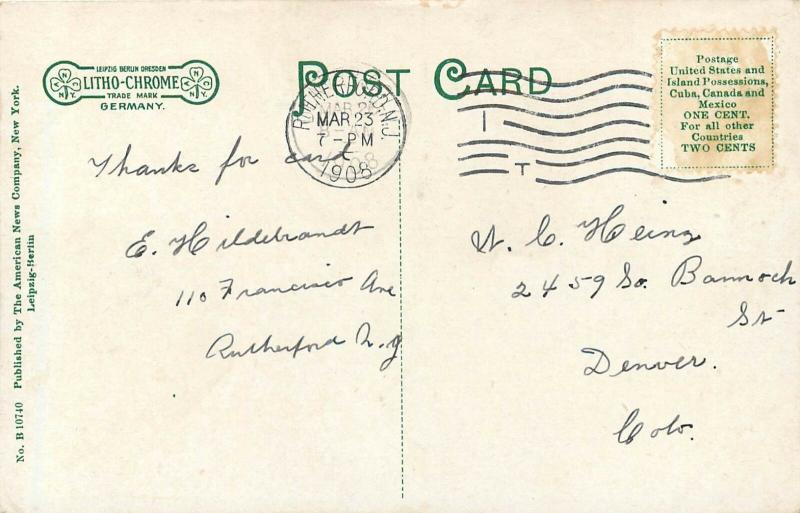 LEIPZIG BERLIN DRESDEN
LITHO-CHROME
TRADE MARK
GERMANY.
N
N
N
Y.
N
N
N
Y.
POST CARD
RUTHERFORD, N.J.
MAR 23
7-PM
1908
Postage
United States and
Island Possessions,
Cuba, Canada and
Mexico
ONE CENT.
For all other
Countries
TWO CENTS
Thanks for card
E. Hildebrandt
110 Francisco Ave
Rutherford N.J
W. C. Heinz
2459 So. Bannock
St
Denver.
Colo.
No. B 10740 Published by The American News Company, New York.
Leipzig-Berlin